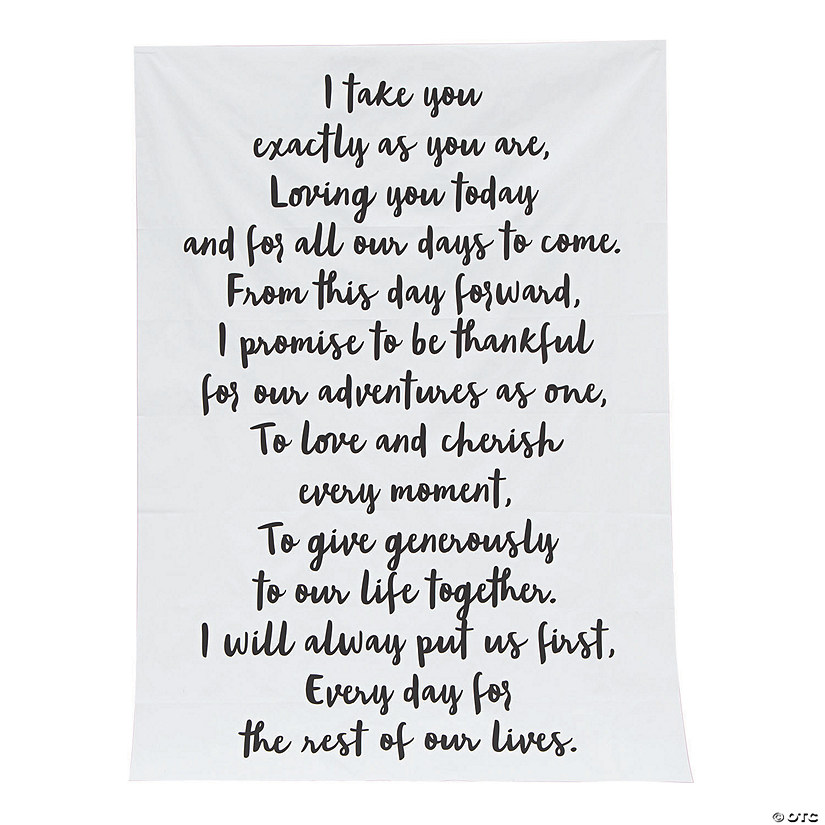 I take you
exactly as you are,
Loving you today
and for all our days to come.
From this day forward,
I promise to be thankful
for our adventures as one,
To love and cherish
every moment,
To give generously
to our life together.
I will alway put us first,
Every day for
the rest of our lives.
© OTC